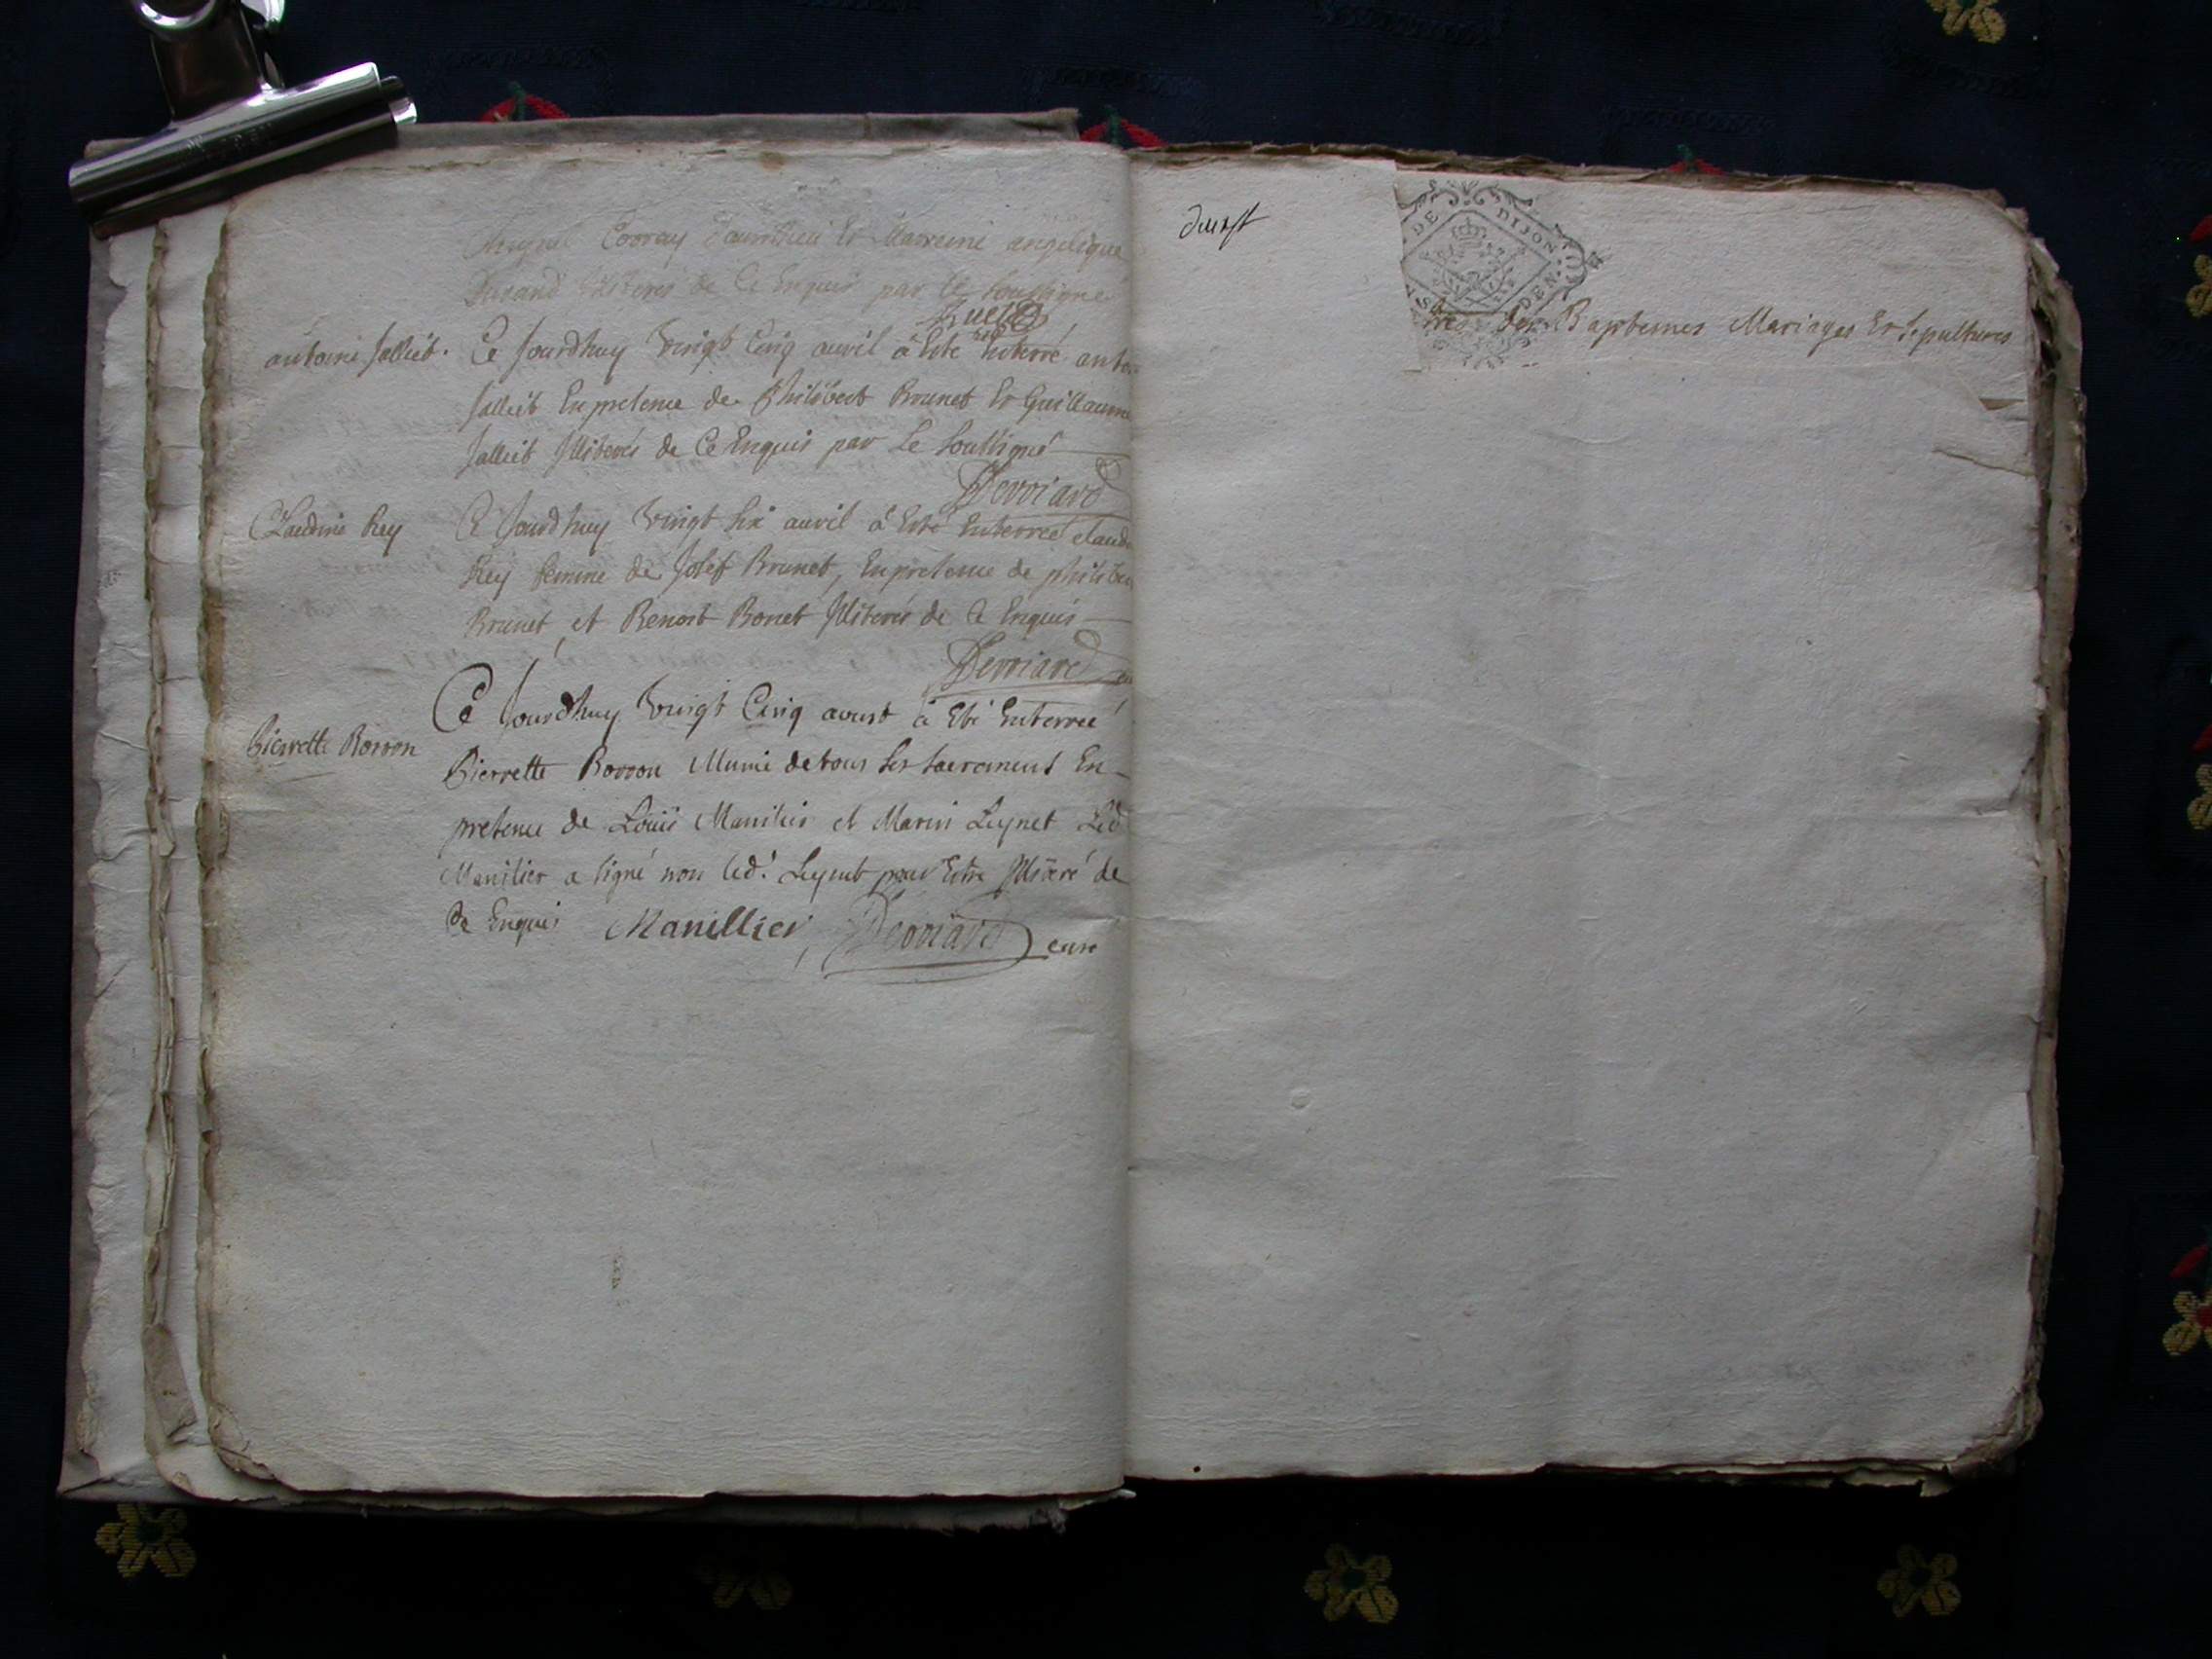 Corray Et Marreine angelique
Durand illiteres de Ce Enquis par le Soussigné
Ruet
antoine Jallict. Ce Jourdhuy Vingt Cinq avril à Esté Enterré anto
Jallict En presence de Philibert Brunet Et Guillaume
Jallict Illiterés de Ce Enquis par Le Soussigné
Derriard
Claudine Rey Ce Jourdhuy Vingt Six avril à Esté Enterreé claud
Rey femme de Josef Brunet, En presence de philiber
Brunet, et Benoit Bonet Illiterés de Ce Enquis
Derriard
Ce Jourdhuy Vingt Cinq aoust à Eté Enterreé
Pierrette Borron
Pierrette Borron Munie de tous ses sacrements En
presence de Loüis Manilier et Marin Luynet Led
Manilier a signé non led. Luynet pour Estre Illiteré de
De Enquis Manillier, Derriard curé
DE DIJON
DEN
des Baptemes Mariages Et Sepultures